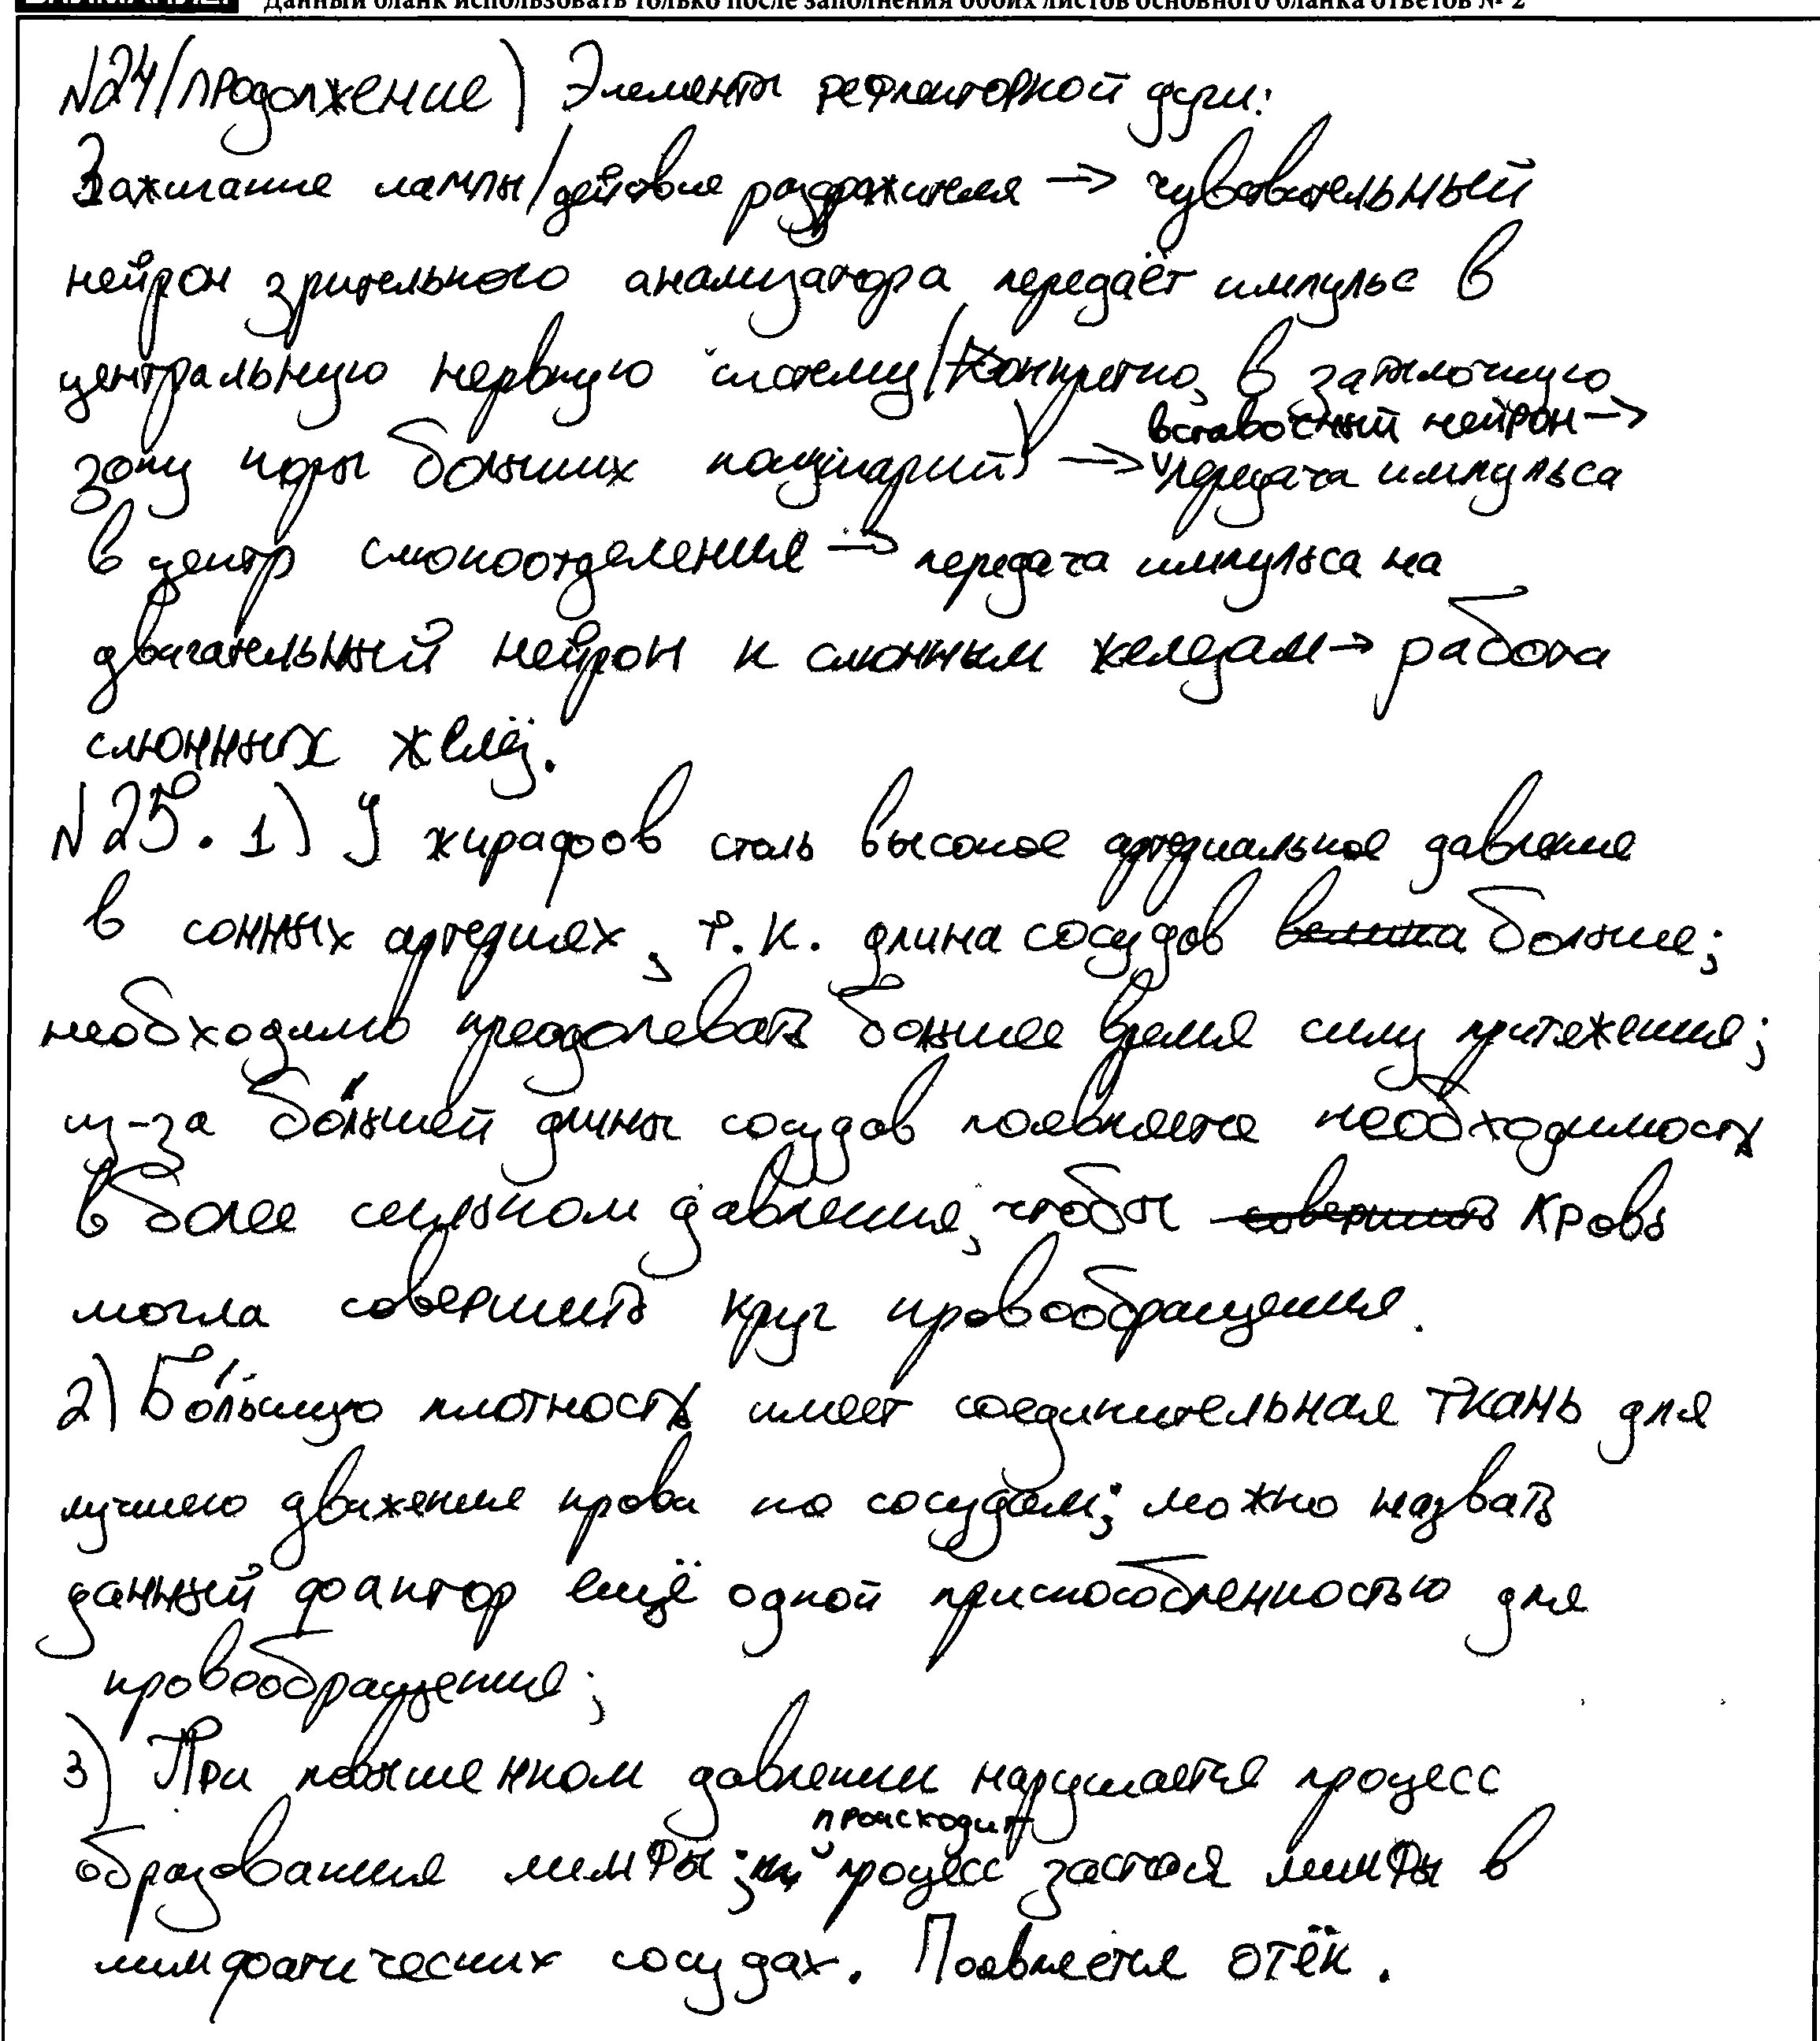 Данный бланк использовать только после заполнения обоих листов основного бланка ответов № 2
№24(продолжение) Элементы рефлекторной дуги:
Зажигание лампы/действие раздражителя → чувствительный
нейрон зрительного анализатора передаёт импульс в
центральную нервную систему (конкретно, в затылочную
зону коры больших полушарий) → вставочный нейрон →
передача импульса
в центр слюноотделения → передача импульса на
двигательный нейрон к слюнным железам → работа
слюнных желёз.
№25. 1) У жирафов столь высокое артериальное давление
в сонных артериях, т.к. длина сосудов велика больше;
необходимо преодолевать большее время силу притяжения;
из-за бóльшей длины сосудов появляется необходимость
в более сильном давлении, чтобы совершить кровь
могла совершить круг кровообращения.
2) Бóльшую плотность имеет соединительная ткань для
лучшего движения крови по сосудам; можно назвать
данный фактор ещё одной приспособленностью для
кровообращения;
3) При повышенном давлении нарушается процесс
образования лимфы; происходит процесс застоя лимфы в
лимфатических сосудах. Появляется отёк.